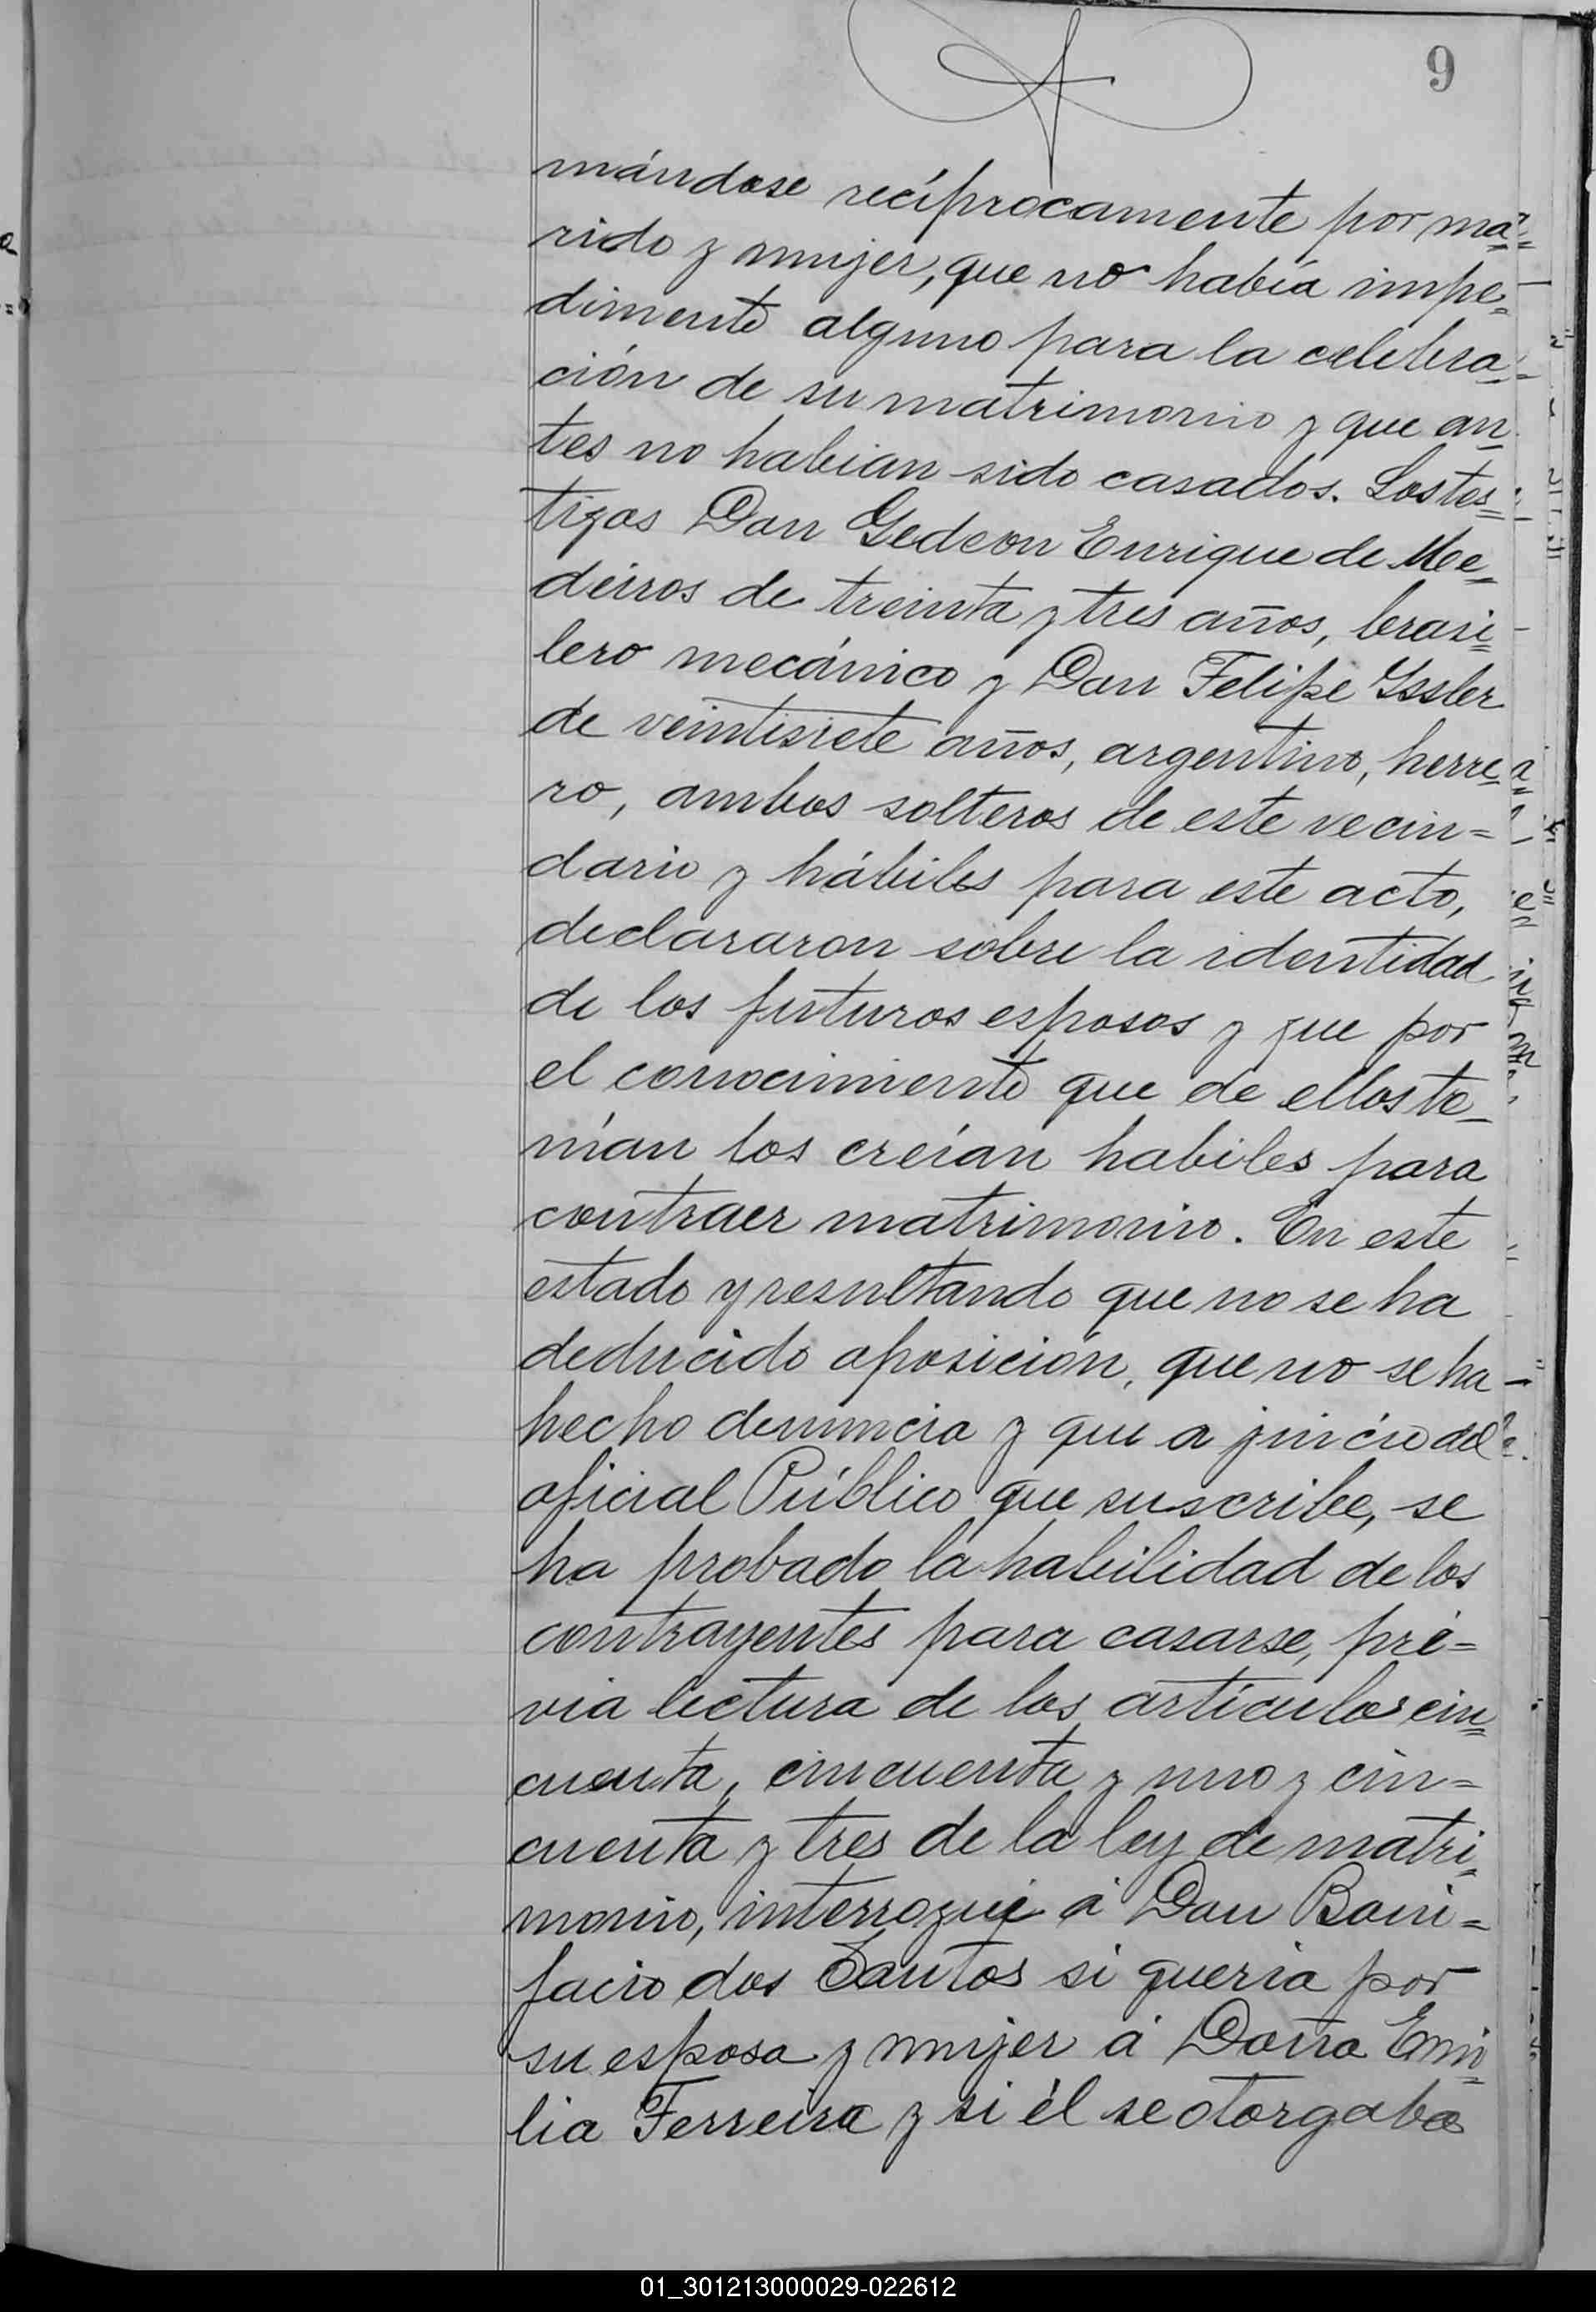 9
mándose recíprocamente por ma=
rido y mujer, que no había impe=
dimento alguno para la celebra=
ción de su matrimonio y que an=
tes no habian sido casados. Los tes=
tigos Don Gedeon Enrique de Me=
deiros de treinta y tres años, brasi=
lero mecánico y Don Felipe Issler
de veintisiete años, argentino, herre=
ro, ambos solteros de este vecin=
dario y hábiles para este acto,
declararon sobre la identidad
de los futuros esposos y que por
el conocimiento que de ellos te=
nían los creían habiles para
contraer matrimonio. En este
estado y resultando que no se ha
deducido oposición, que no se ha
hecho denuncia y que a juicio del
oficial Público que suscribe, se
ha probado la habilidad de los
contrayentes para casarse, pré=
via lectura de los artículos cin=
cuenta, cincuenta y uno y cin=
cuenta y tres de la ley de matri=
monio, interrogué á Don Boni=
facio dos Santos si queria por
su esposa y mujer á Doña Emi=
lia Ferreira y si él se otorgaba
01_301213000029-022612